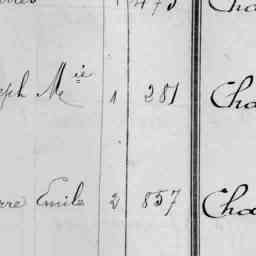 473 Cha
eph Mie 1 281 Cha
rre Emile 2 857 Cha